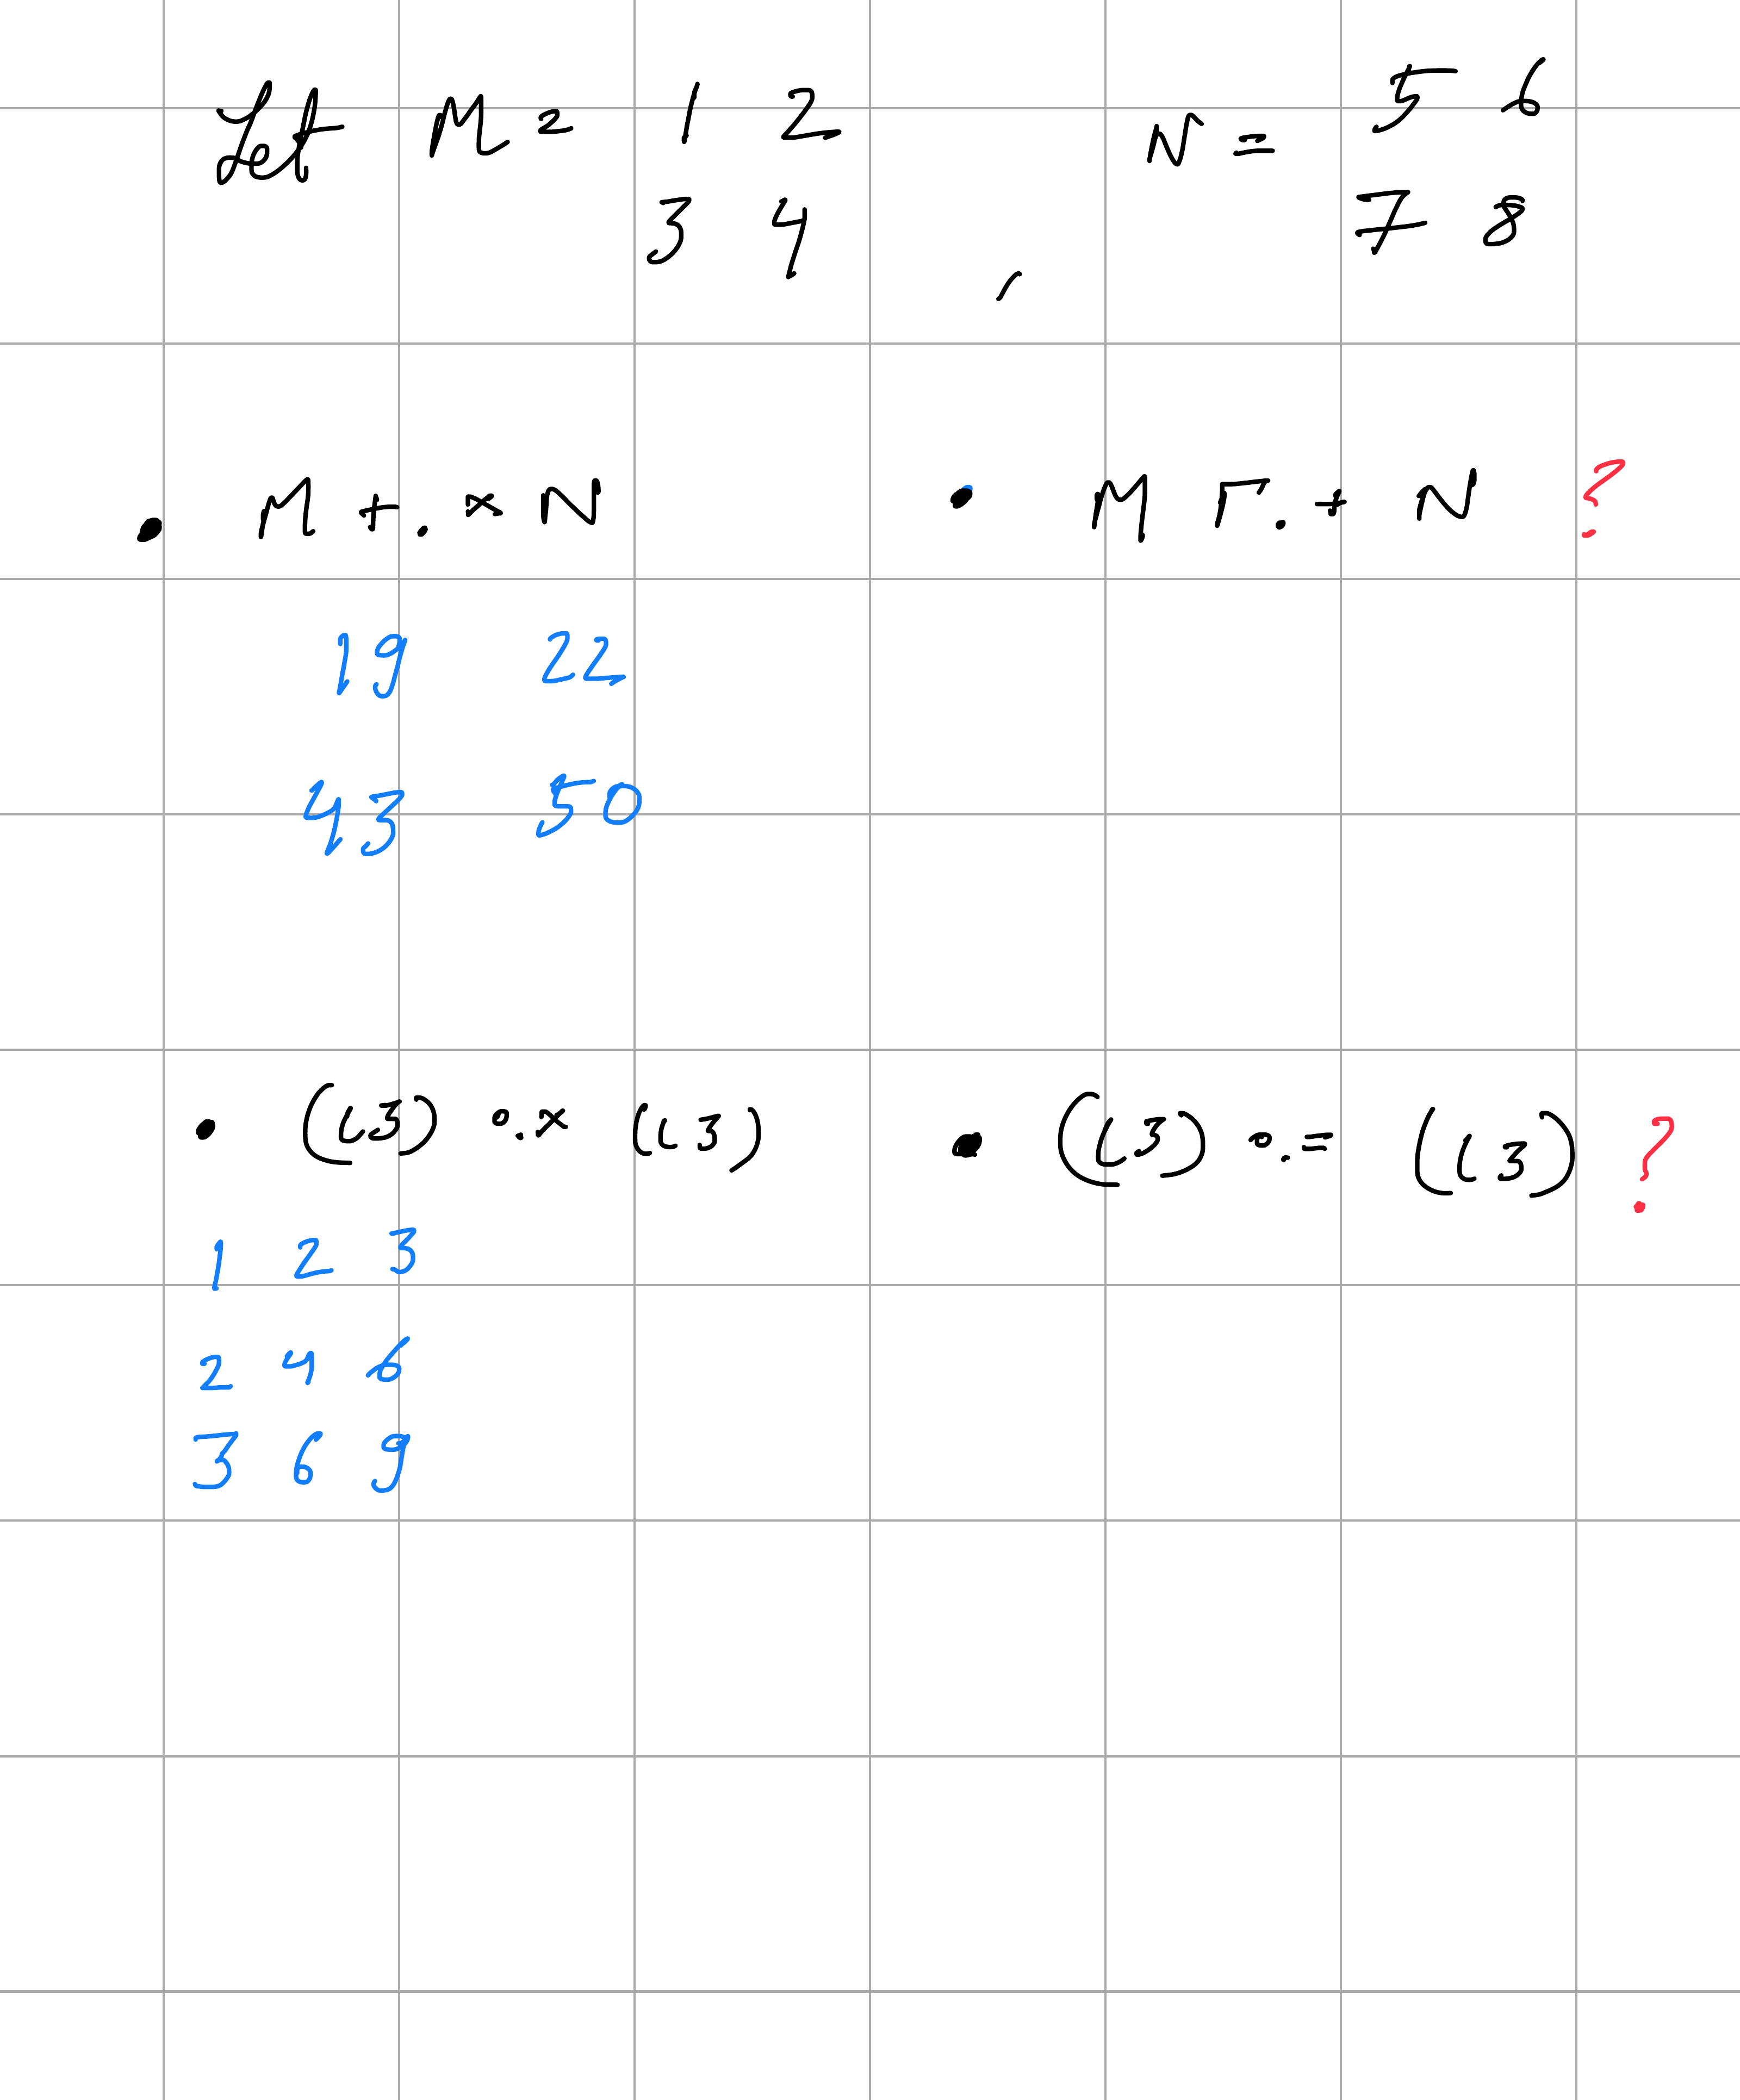 Let M = 1 2
3 4 ,
N = 5 6
7 8
• M +.× N
19 22
43 50
• M ⌈.+ N ?
• (⍳3) ∘.× (⍳3)
1 2 3
2 4 6
3 6 9
• (⍳3) ∘.= (⍳3) ?